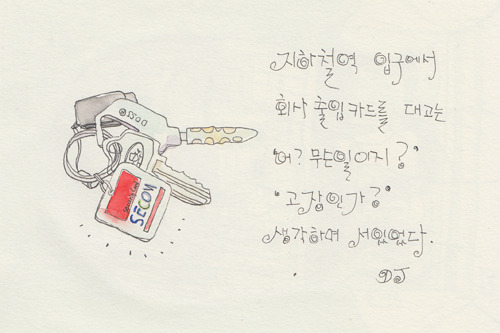 SECOM
지하철역 입구에서
회사 출입카드를 대고는
"어? 무슨일이지?"
"고장인가?"
생각하며 서있었다.
DJ